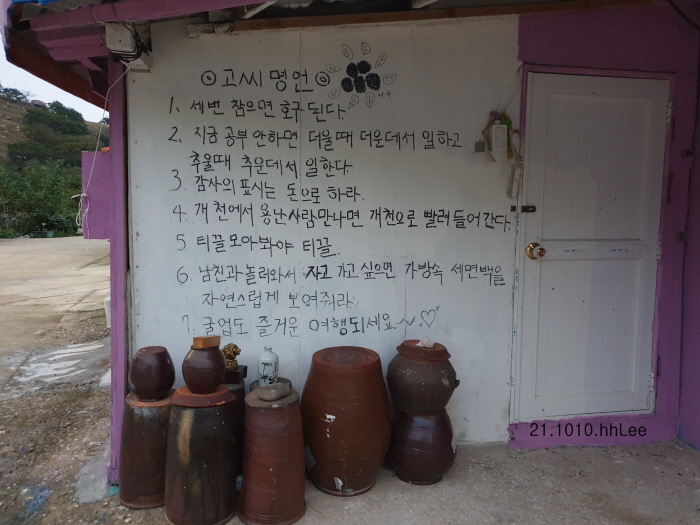 ⊙고씨 명언⊙
1. 세번 참으면 호구 된다.
2. 지금 공부 안하면 더울때 더운데서 일하고
추울때 추운데서 일한다.
3. 감사의 표시는 돈으로 하라.
4. 개천에서 용난사람만나면 개천으로 빨려들어간다.
5 티끌모아봐야 티끌.
6. 남친과 놀러와서 자고 가고 싶으면 가방속 세면백을
자연스럽게 보여줘라.
7. 굴업도 즐거운 여행되세요~♡
21.1010.hhLee